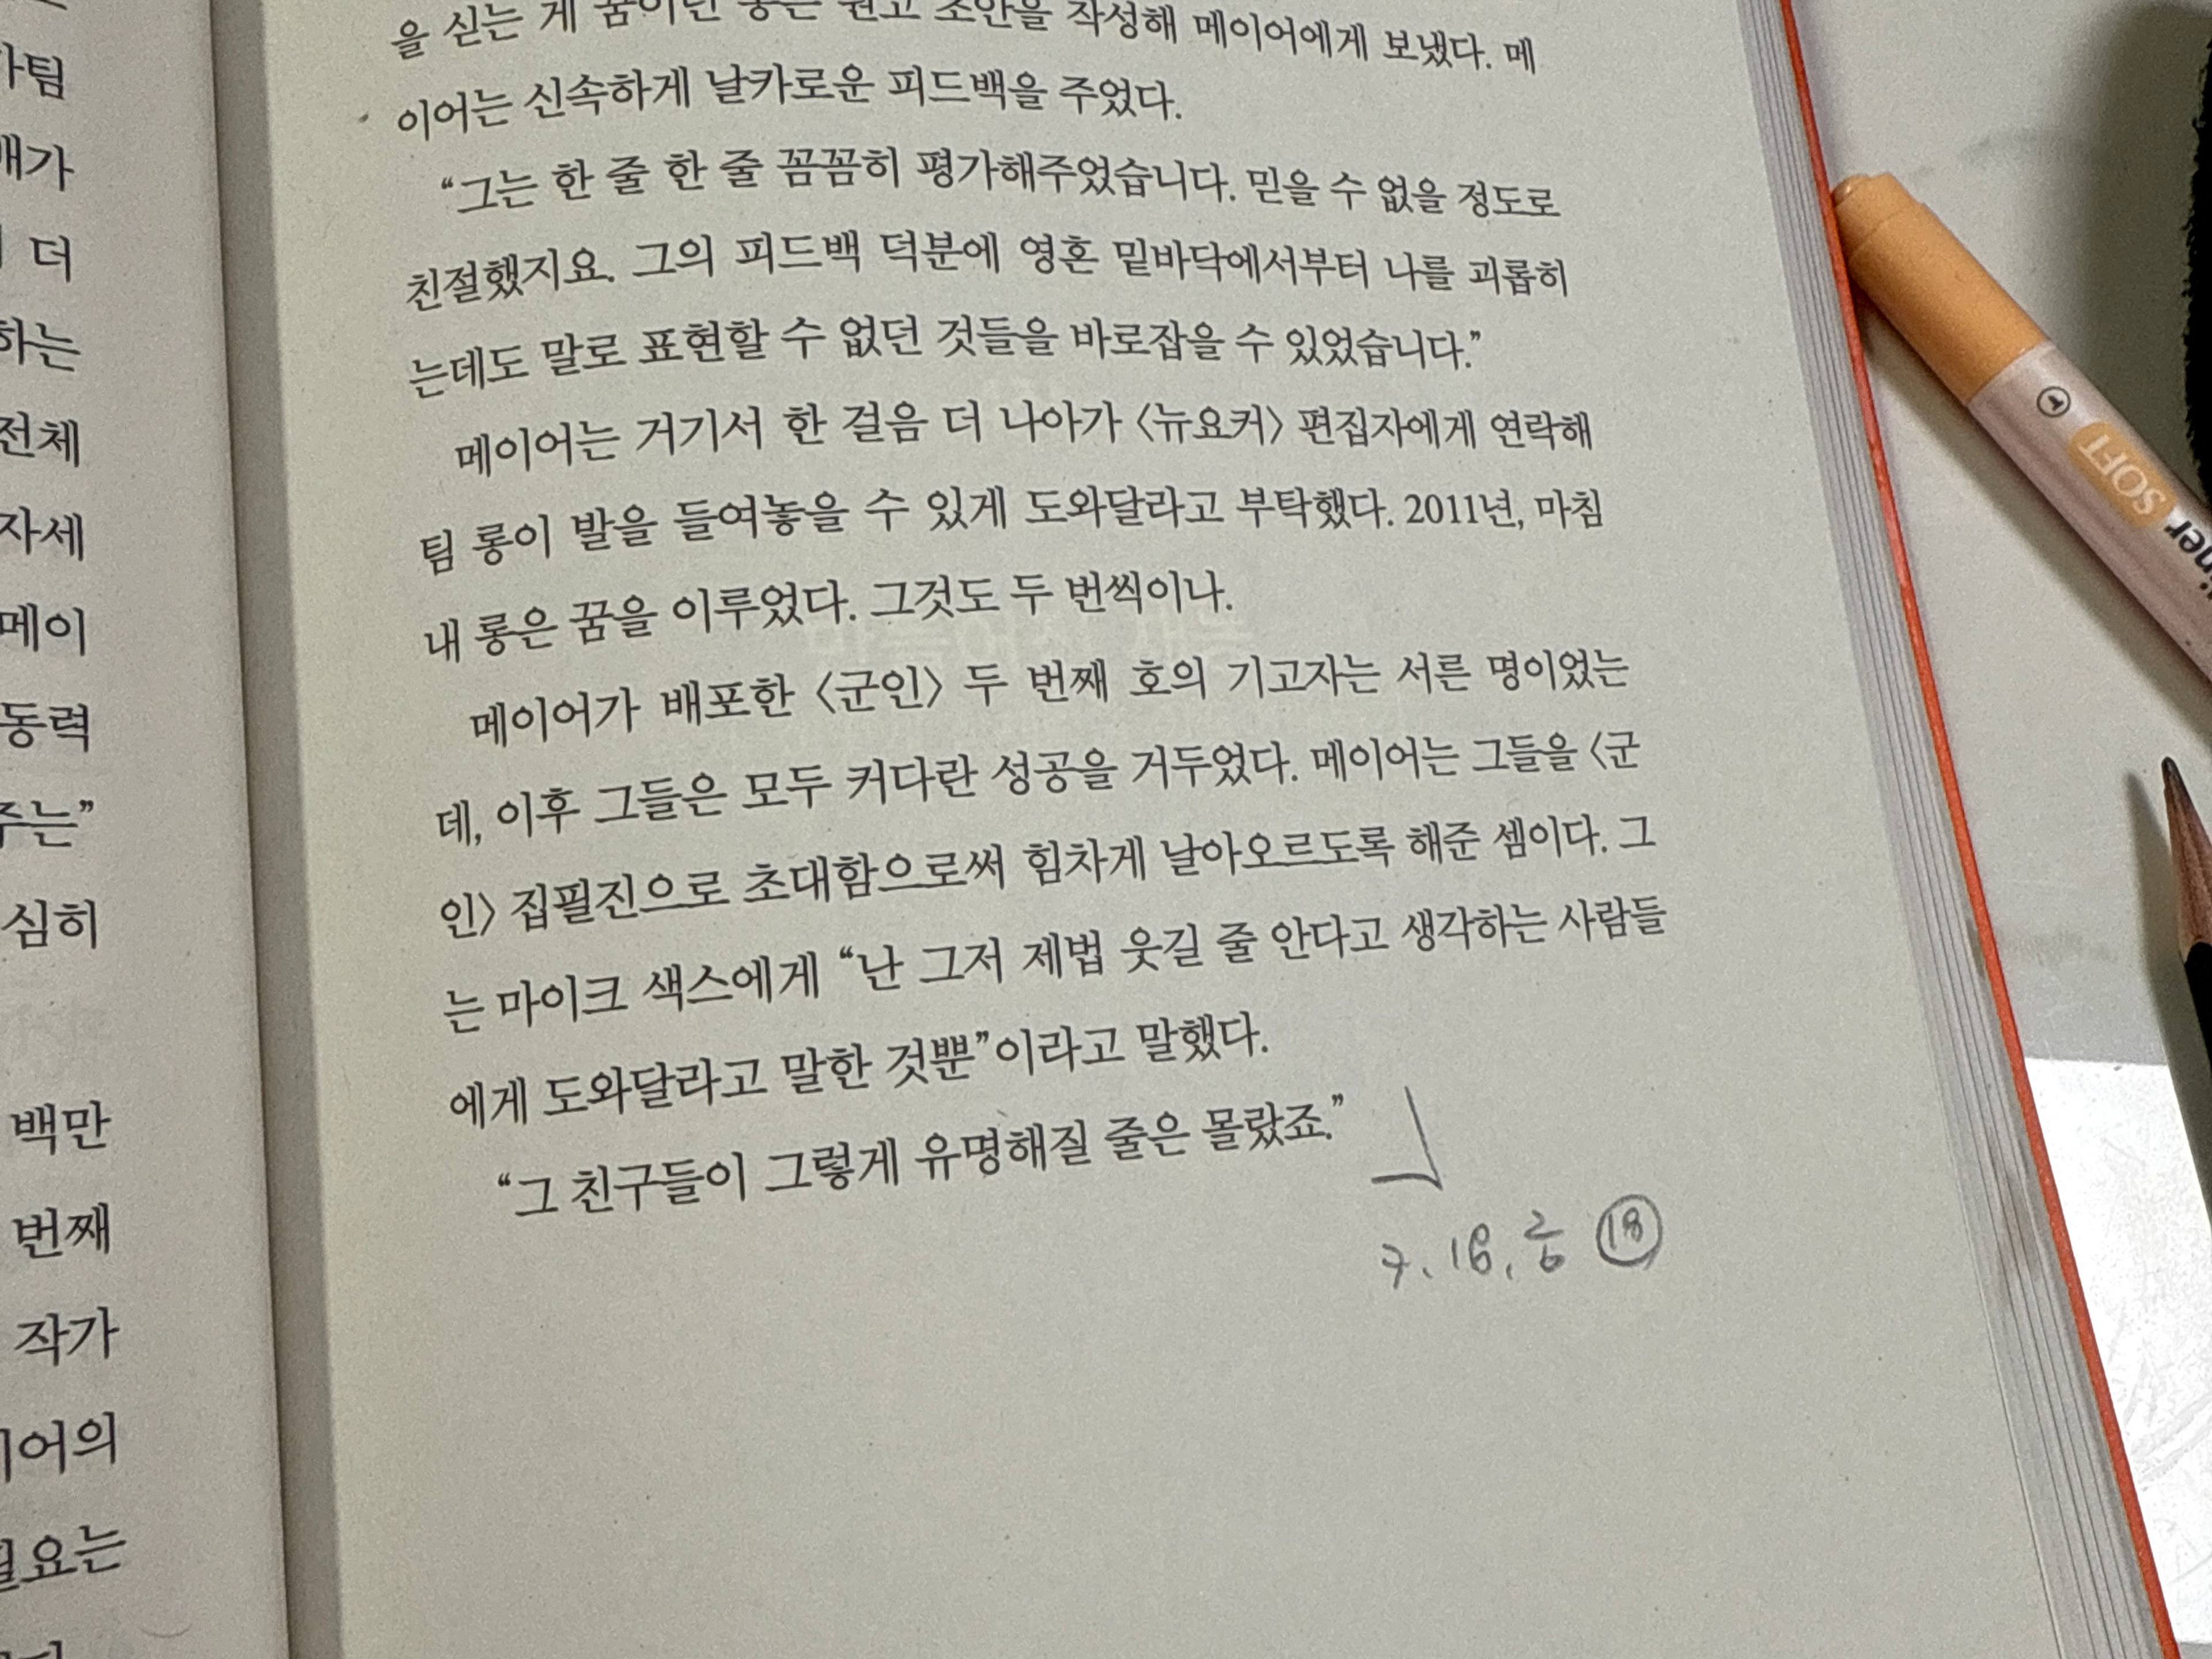 가팀
배가
더
하는
전체
자세
메이
동력
주는”
심히
백만
번째
작가
이어의
필요는
을 싣는 게 꿈이던 롱은 원고 초안을 작성해 메이어에게 보냈다. 메
이어는 신속하게 날카로운 피드백을 주었다.
“그는 한 줄 한 줄 꼼꼼히 평가해주었습니다. 믿을 수 없을 정도로
친절했지요. 그의 피드백 덕분에 영혼 밑바닥에서부터 나를 괴롭히
는데도 말로 표현할 수 없던 것들을 바로잡을 수 있었습니다.”
메이어는 거기서 한 걸음 더 나아가 〈뉴요커〉 편집자에게 연락해
팀 롱이 발을 들여놓을 수 있게 도와달라고 부탁했다. 2011년, 마침
내 롱은 꿈을 이루었다. 그것도 두 번씩이나.
메이어가 배포한 〈군인〉 두 번째 호의 기고자는 서른 명이었는
데, 이후 그들은 모두 커다란 성공을 거두었다. 메이어는 그들을 〈군
인〉 집필진으로 초대함으로써 힘차게 날아오르도록 해준 셈이다. 그
는 마이크 색스에게 “난 그저 제법 웃길 줄 안다고 생각하는 사람들
에게 도와달라고 말한 것뿐”이라고 말했다.
“그 친구들이 그렇게 유명해질 줄은 몰랐죠.”
18
SOFT